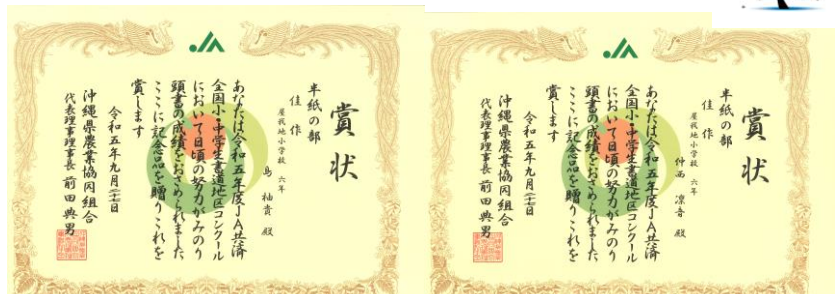 賞状
半紙の部
佳作
屋我地小学校 六年
島 柚貴 殿
あなたは令和五年度JA共済
全国小・中学生書道地区コンクール
において日頃の努力がみのり
頭書の成績をおさめられました
ここに記念品を贈りこれを
賞します
令和五年九月二七日
沖縄県農業協同組合
代表理事理事長 前田典男
賞状
半紙の部
佳作
屋我地小学校 六年
仲西 凛音 殿
あなたは令和五年度JA共済
全国小・中学生書道地区コンクール
において日頃の努力がみのり
頭書の成績をおさめられました
ここに記念品を贈りこれを
賞します
令和五年九月二七日
沖縄県農業協同組合
代表理事理事長 前田典男